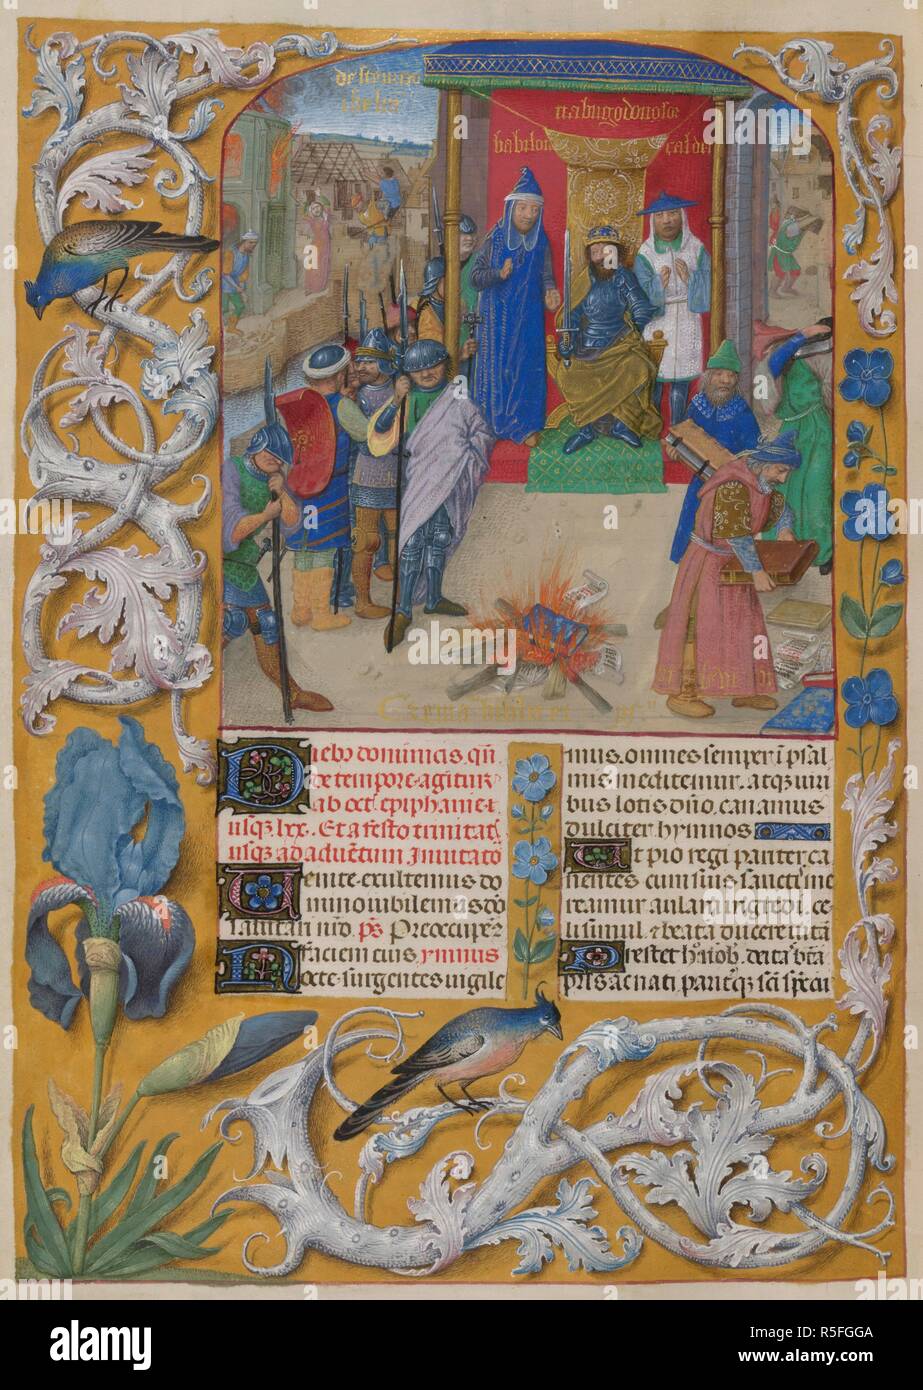 de structio
nabugodonosor
babilon
caldei
Diebus dominicis, qñ
de tempore agitur
ab oct epiphanie
usq; lxx. Et a festo trinitatis
usq; ad aduentum Inuitatoriũ
Uenite exultemus do
mino iubilemus deo
salutari nrõ. ps Preoccupem9
faciem eius, ymnus
Nocte surgentes uigile
mus, omnes semper ĩ psal
mis meditemur, atq; uiri
bus totis dño, canamus
dulciter hymnos
Ut pio regi pariter, ca
nentes cum suis sanctis me
reamur aulam, ingredi, ce
li simul, & beatã ducere uitã
Prestet h' nob, deitas bẽta
pris ac nati, pariterq; sci spũs
alamy
Image ID: R5FGGA
www.alamy.com